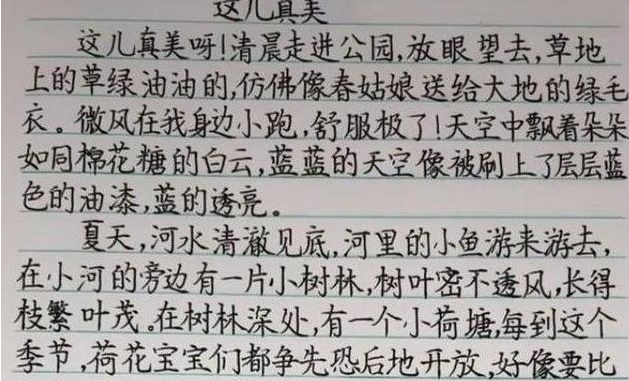 这儿真美
这儿真美呀!清晨走进公园,放眼望去,草地
上的草绿油油的,仿佛像春姑娘送给大地的绿毛
衣。微风在我身边小跑,舒服极了!天空中飘着朵朵
如同棉花糖的白云,蓝蓝的天空像被刷上了层层蓝
色的油漆,蓝的透亮。
夏天,河水清澈见底,河里的小鱼游来游去,
在小河的旁边有一片小树林,树叶密不透风,长得
枝繁叶茂。在树林深处,有一个小荷塘,每到这个
季节,荷花宝宝们都争先恐后地开放,好像要比